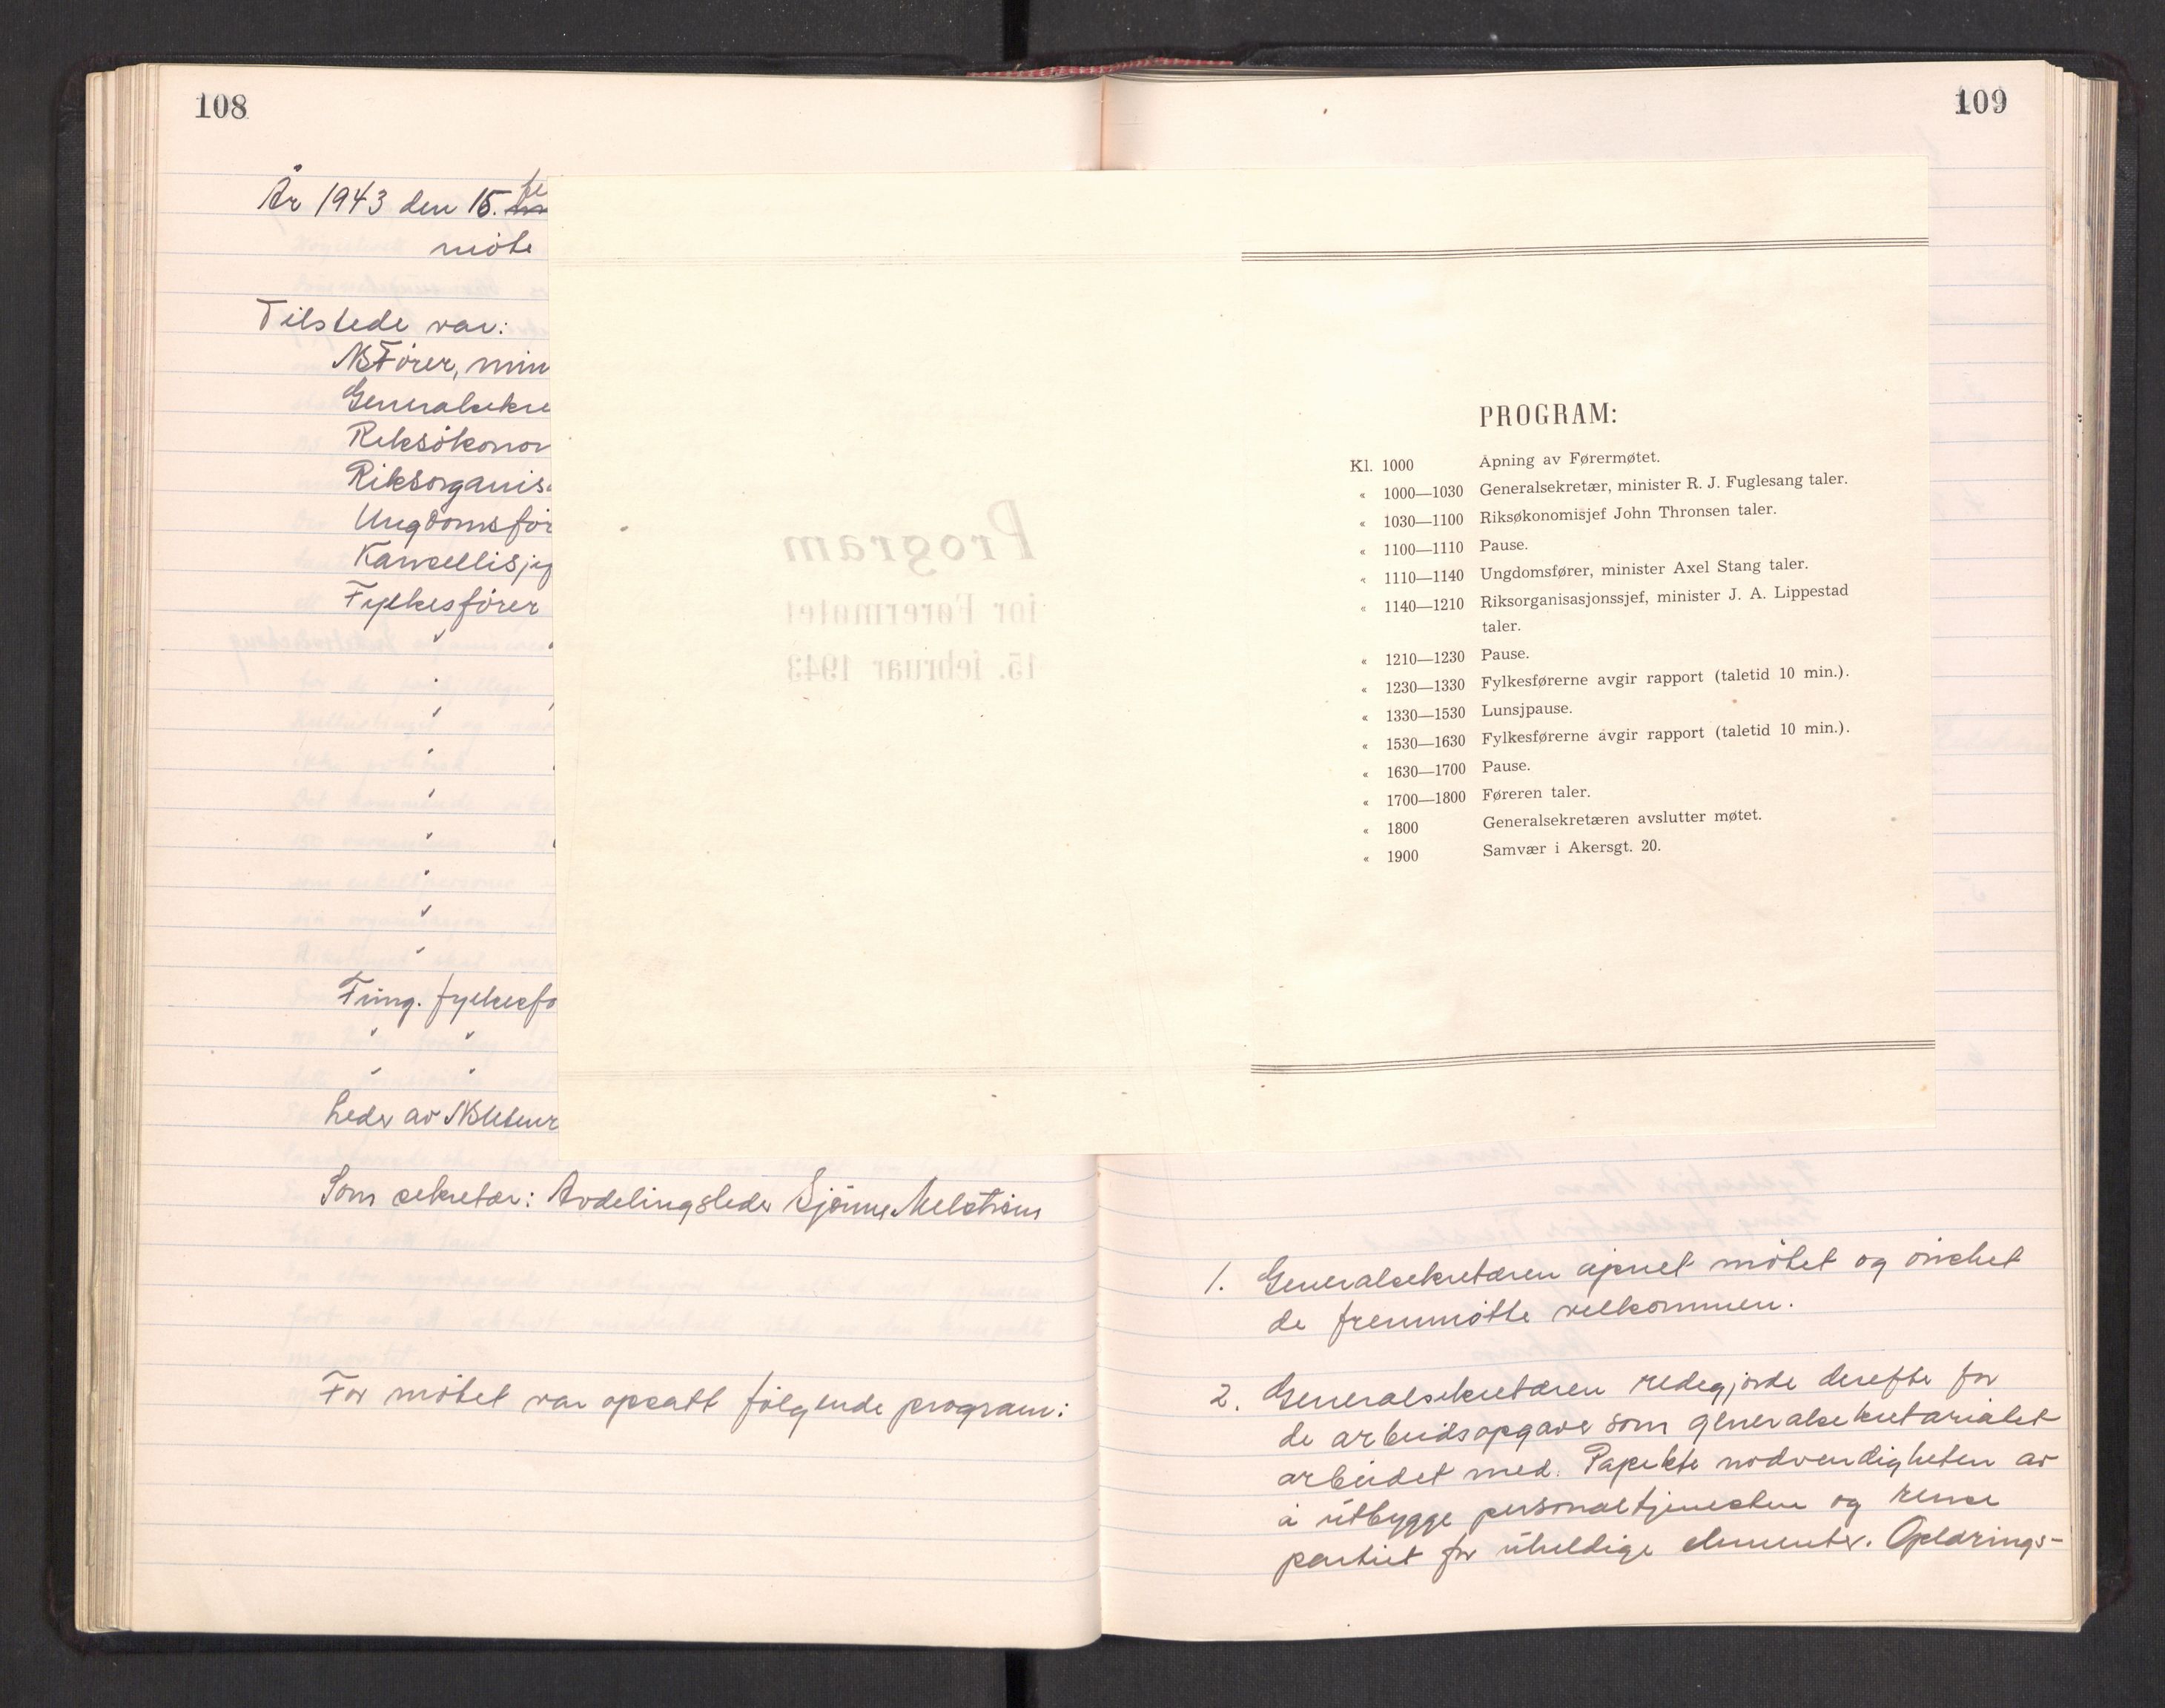 108
År 1943 den 15. fe
møte
Tilstede var:
NS Fører, min
Generalsekre
Riksøkonom
Riksorganis
Ungdomsfør
Kansellisjef
Fylkesfører
Fung. fylkesfø
Leder av NS
Som sekretær: Avdelingsleder
For møtet var opsatt følgende program:
109
Program
for Førermøtet
15. februar 1943
PROGRAM:
Kl. 1000 Åpning av Førermøtet.
« 1000—1030 Generalsekretær, minister R. J. Fuglesang taler.
« 1030—1100 Riksøkonomisjef John Thronsen taler.
« 1100—1110 Pause.
« 1110—1140 Ungdomsfører, minister Axel Stang taler.
« 1140—1210 Riksorganisasjonssjef, minister J. A. Lippestad
taler.
« 1210—1230 Pause.
« 1230—1330 Fylkesførerne avgir rapport (taletid 10 min.).
« 1330—1530 Lunsjpause.
« 1530—1630 Fylkesførerne avgir rapport (taletid 10 min.).
« 1630—1700 Pause.
« 1700—1800 Føreren taler.
« 1800 Generalsekretæren avslutter møtet.
« 1900 Samvær i Akersgt. 20.
1. Generalsekretæren åpnet møtet og ønsket
de fremmøtte velkommen.
2. Generalsekretæren redegjorde derefter for
de arbeidsopgaver som generalsekretariatet
arbeidet med. Påpekte nødvendigheten av
å utbygge personaltjenesten og rense
partiet for uheldige elementer. Oplærings-